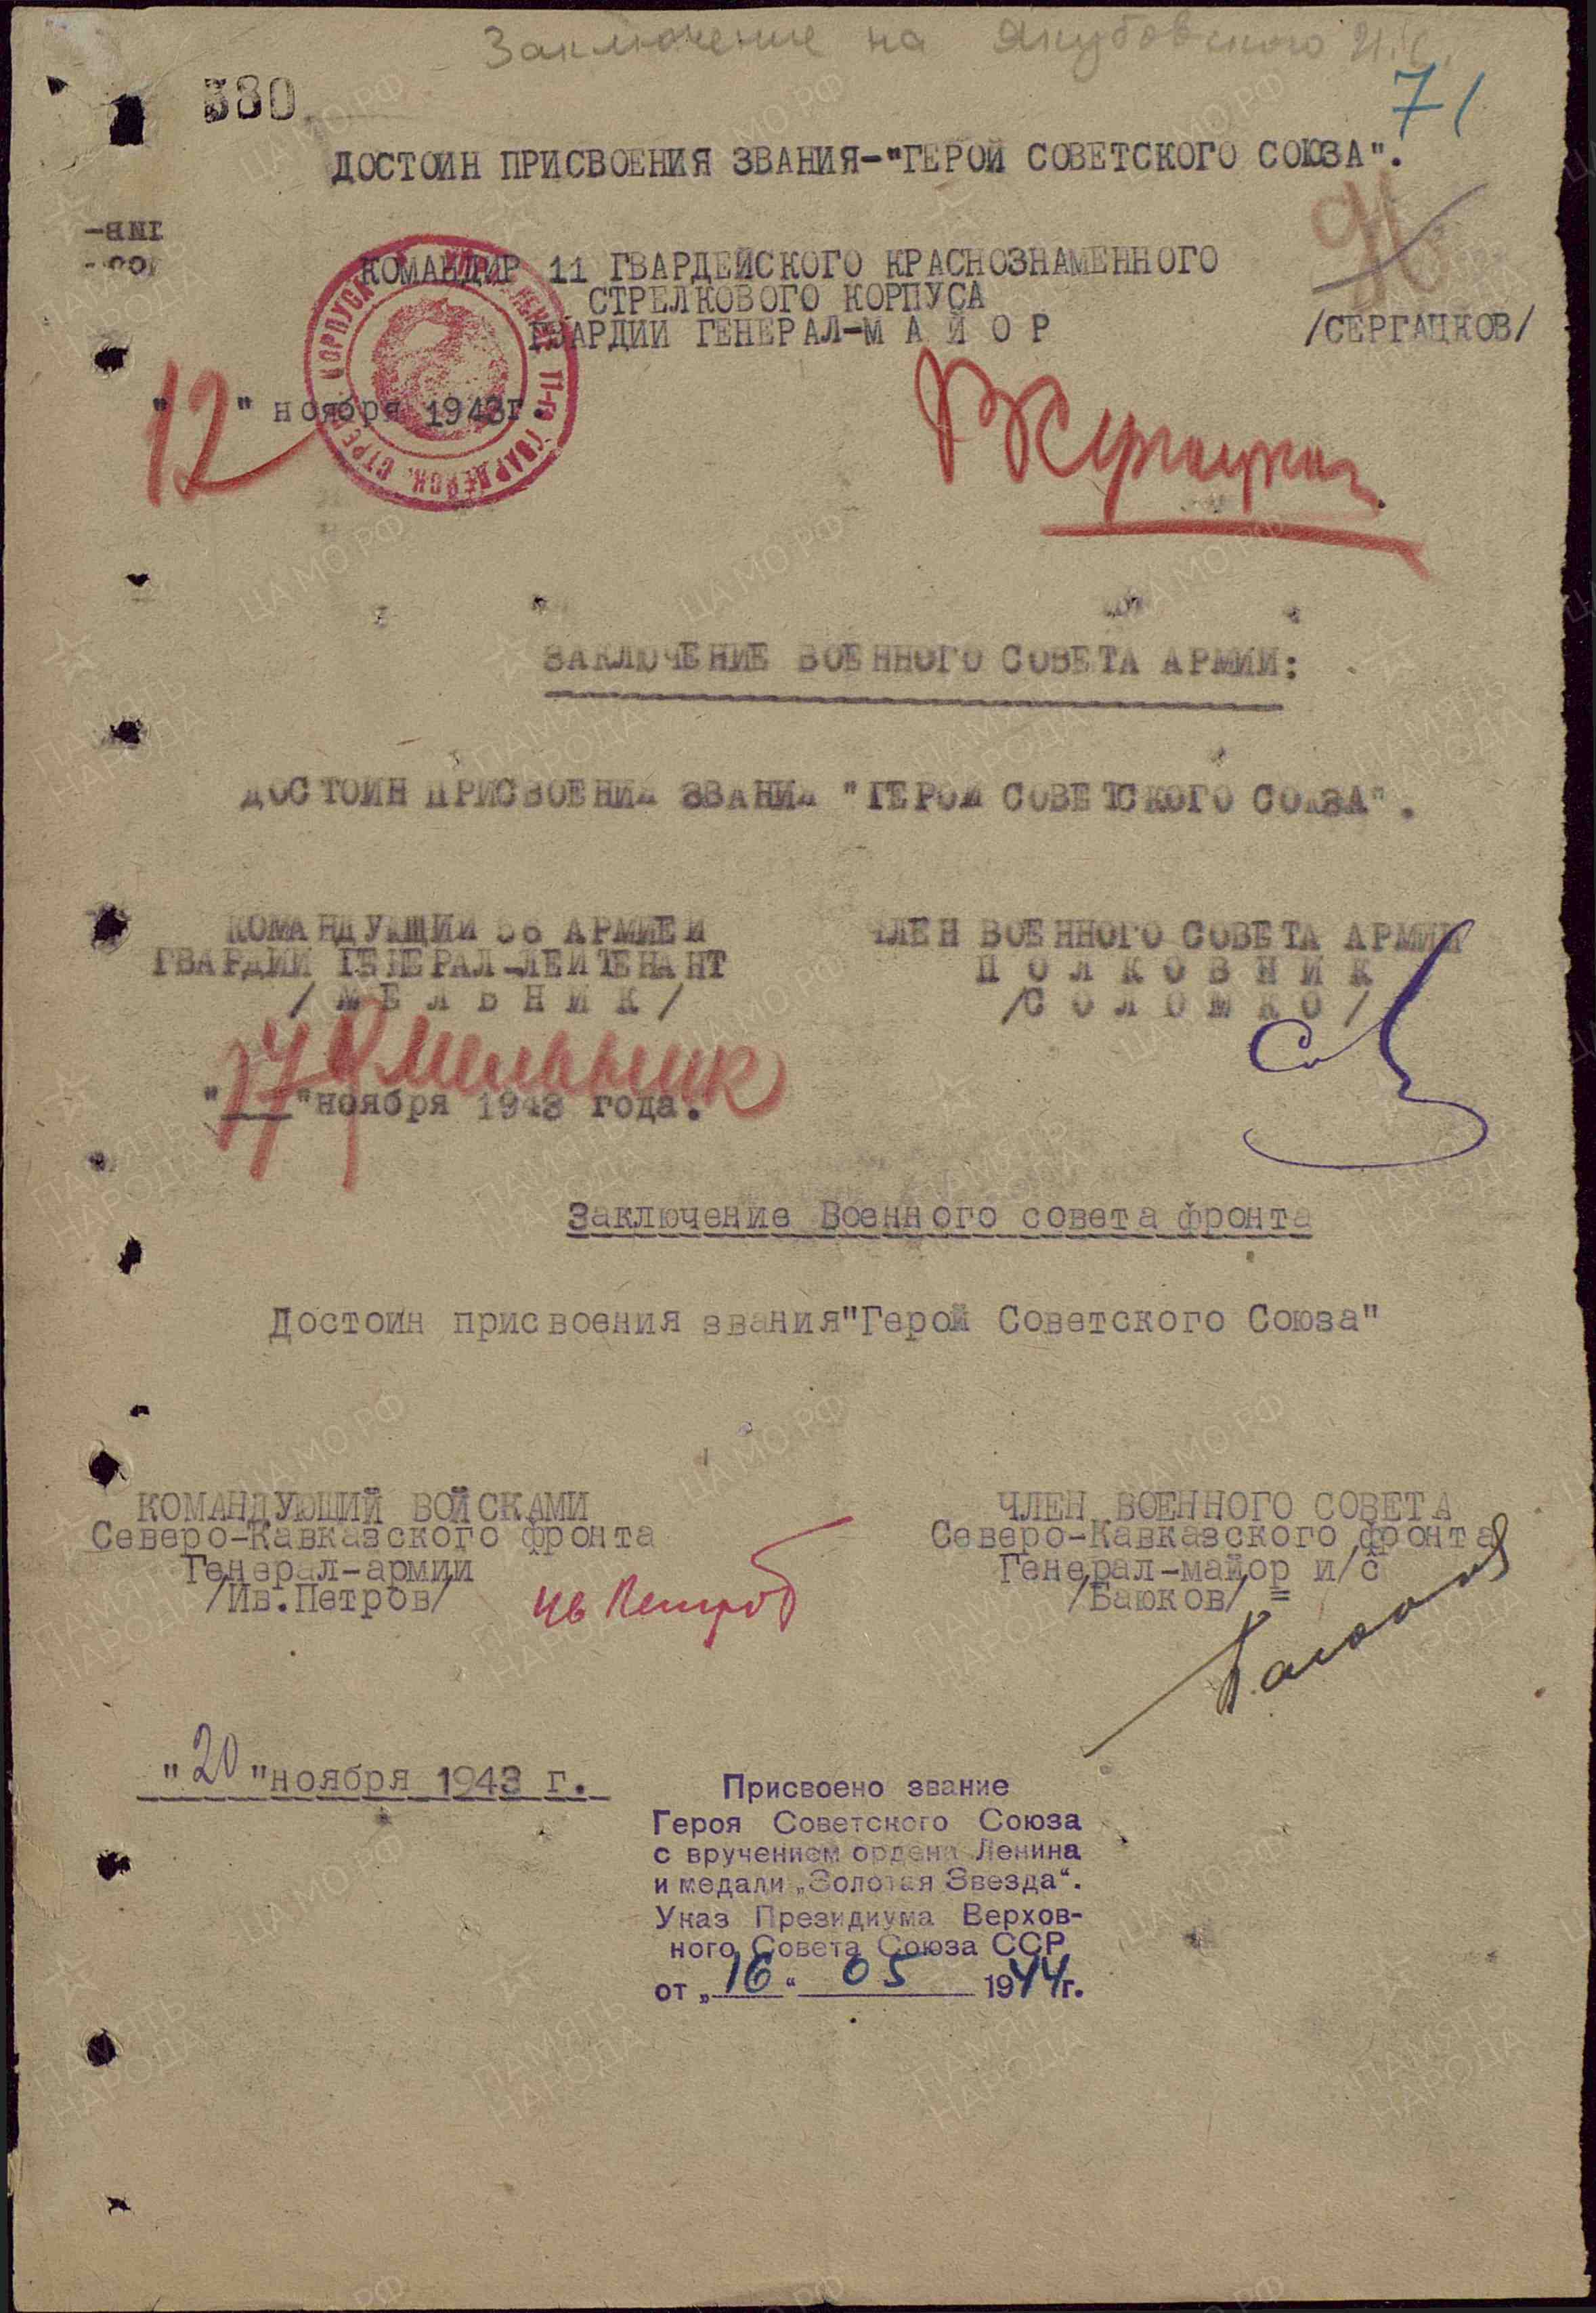 Заключение на Якубовского
380
71
ДОСТОИН ПРИСВОЕНИЯ ЗВАНИЯ-"ГЕРОЙ СОВЕТСКОГО СОЮЗА".
КОМАНДИР 11 ГВАРДЕЙСКОГО КРАСНОЗНАМЕННОГО
СТРЕЛКОВОГО КОРПУСА
ГВАРДИИ ГЕНЕРАЛ-М А Й О Р /СЕРГАЦКОВ/
"12" ноября 1943г.
ЗАКЛЮЧЕНИЕ ВОЕННОГО СОВЕТА АРМИИ:
ДОСТОИН ПРИСВОЕНИЯ ЗВАНИЯ "ГЕРОЙ СОВЕТСКОГО СОЮЗА".
КОМАНДУЮЩИЙ 56 АРМИЕЙ
ГВАРДИИ ГЕНЕРАЛ-ЛЕЙТЕНАНТ
/ М Е Л Ь Н И К /
Мельник
"17" ноября 1943 года.
ЧЛЕН ВОЕННОГО СОВЕТА АРМИИ
П О Л К О В Н И К
/С О Л О М К О /
Заключение Военного совета фронта
Достоин присвоения звания"Герой Советского Союза"
КОМАНДУЮЩИЙ ВОЙСКАМИ
Северо-Кавказского фронта
Генерал-армии
/Ив.Петров/
Ив Петров
ЧЛЕН ВОЕННОГО СОВЕТА
Северо-Кавказского фронта
Генерал-майор и/с
/Баюков/ =
"20"ноября 1943 г.
Присвоено звание
Героя Советского Союза
с вручением ордена Ленина
и медали „Золотая Звезда“.
Указ Президиума Верхов-
ного Совета Союза ССР
от „16“ 05 1944г.